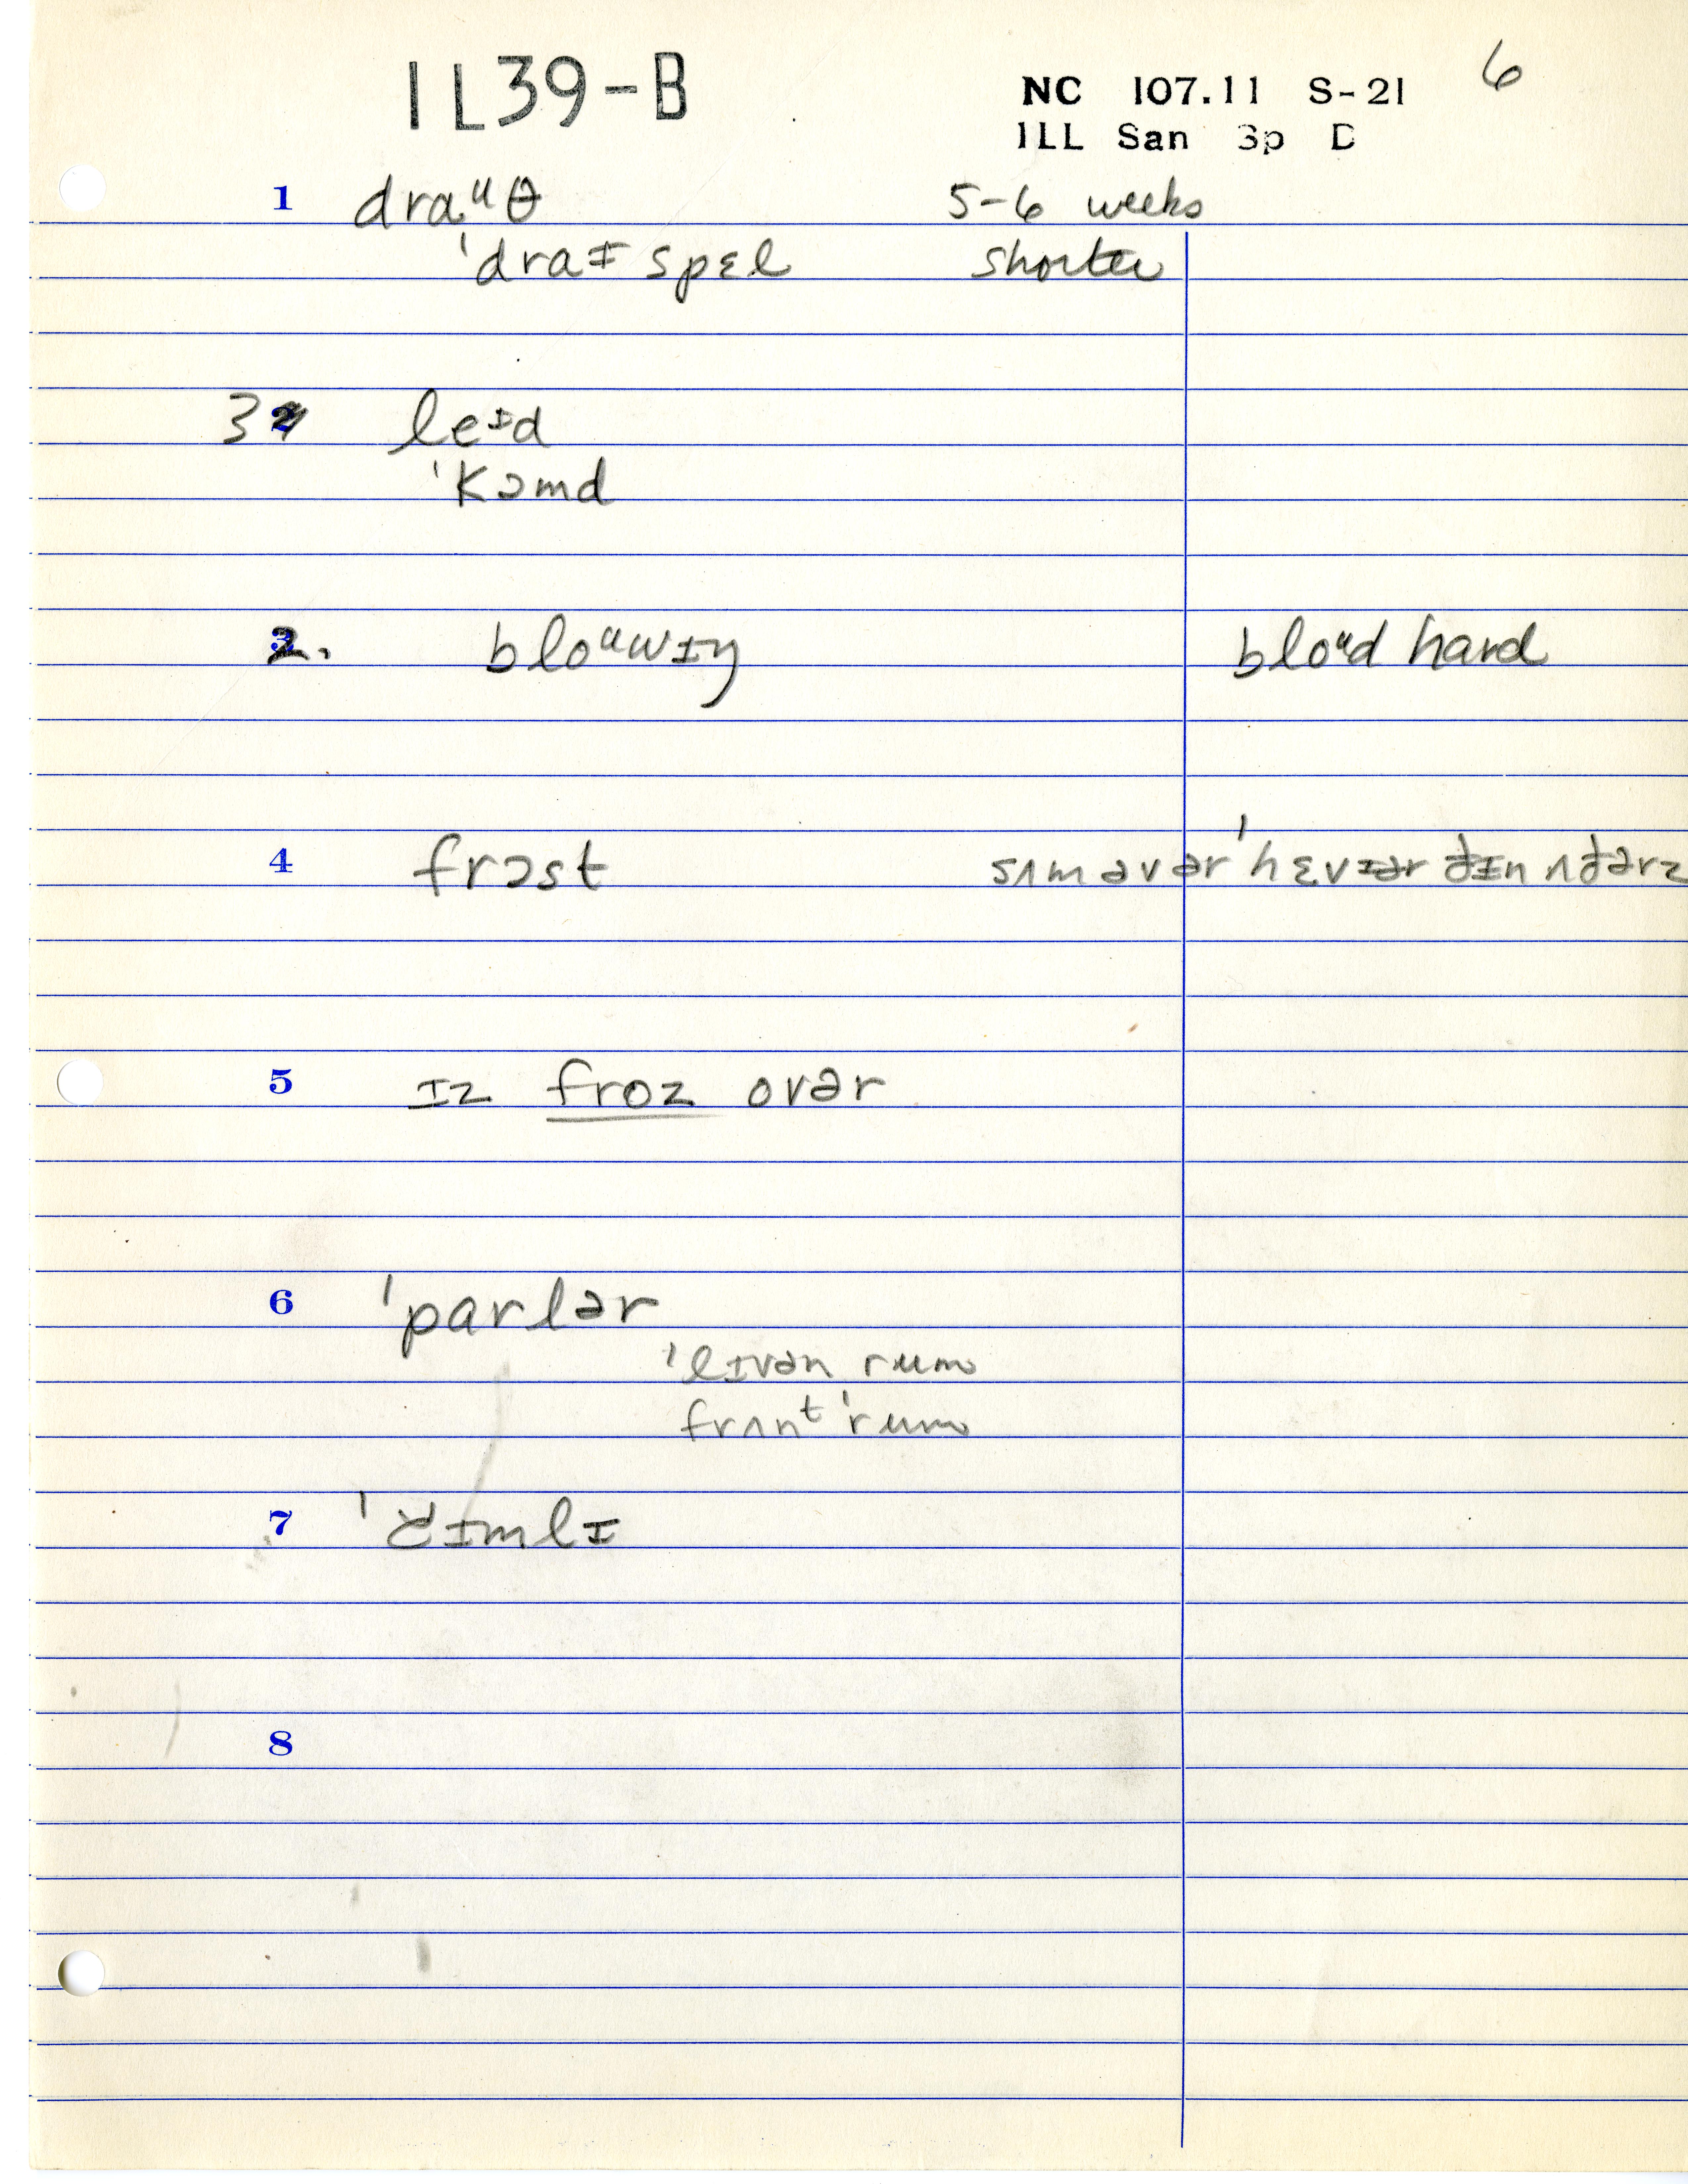 IL39-B
NC 107.11 S-21 6
ILL San Sp D
1 draᵘθ 5-6 weeks
'draɪ spɛl shorter
3 leᶦd
'kɔmd
2. bloᵘwɪŋ bloᵘd hard
4 frɔst sʌm ə vər 'hɛvɪər ðɪn ʌðərz
5 ɪz froz ovər
6 'parlər
'lɪvən rum
frʌnᵗ 'rum
7 'ɪmlɪ
8